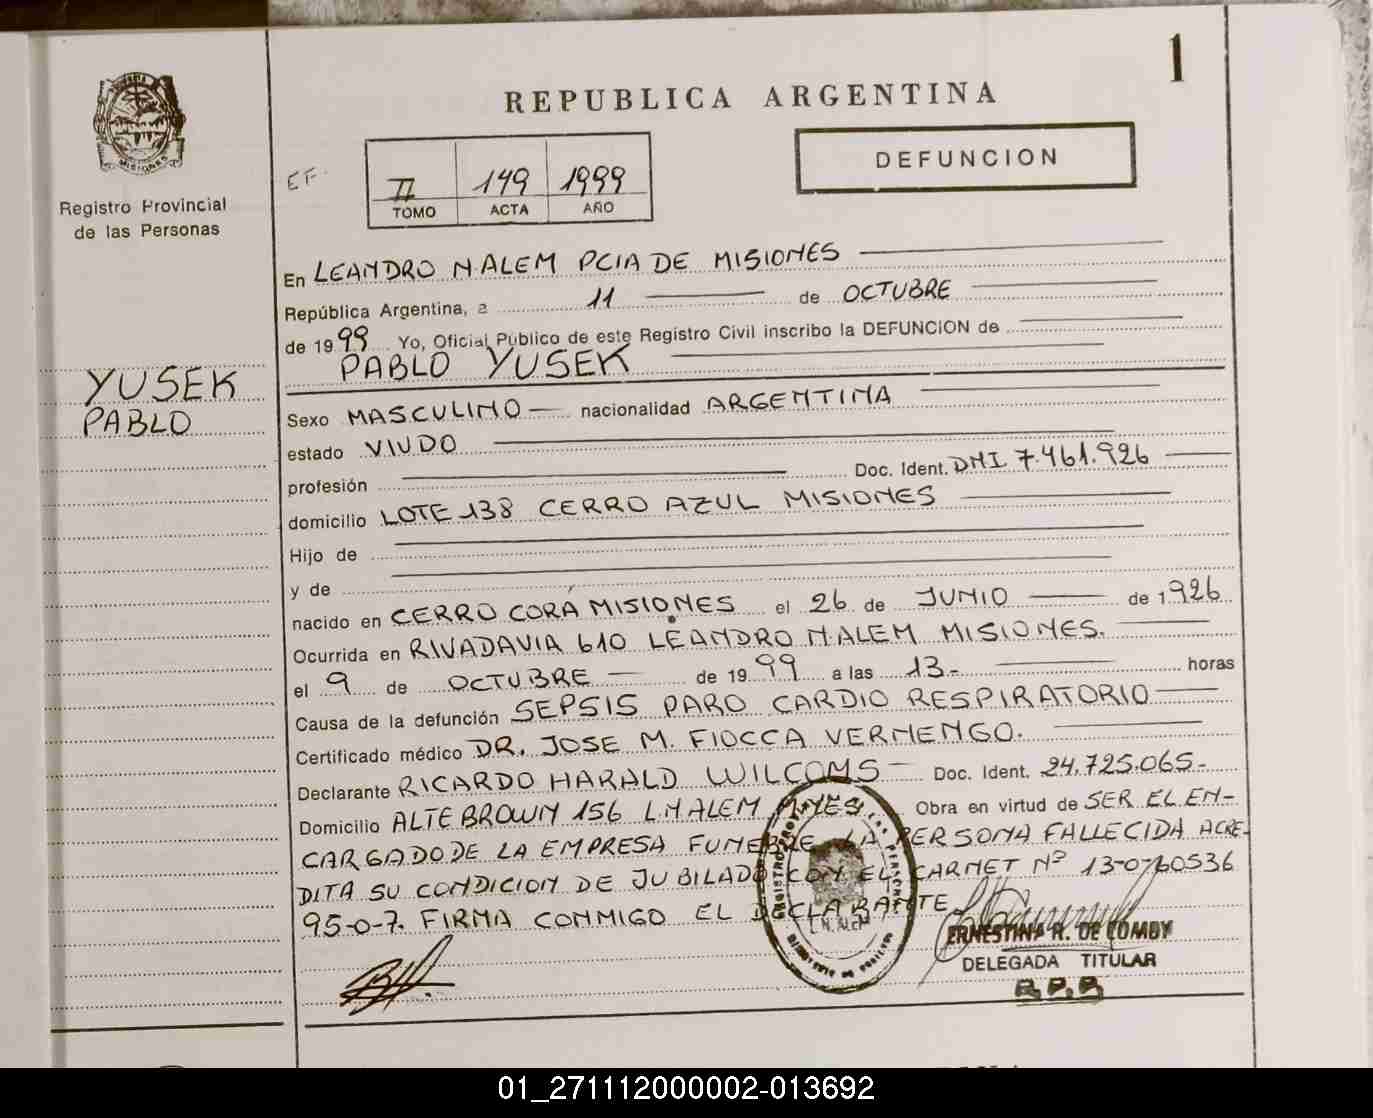 1
REPUBLICA ARGENTINA
DEFUNCION
MISIONES
Registro Provincial
de las Personas
EF.
II 149 1999
TOMO ACTA AÑO
En LEANDRO N ALEM PCIA DE MISIONES
República Argentina, a 11 de OCTUBRE
de 1999 Yo, Oficial Público de este Registro Civil inscribo la DEFUNCION de
PABLO YUSEK
YUSEK
PABLO
Sexo MASCULINO nacionalidad ARGENTINA
estado VIUDO
profesión Doc. Ident. DNI 7.461.926
domicilio LOTE 138 CERRO AZUL MISIONES
Hijo de
y de
nacido en CERRO CORA MISIONES el 26 de JUNIO de 1926
Ocurrida en RIVADAVIA 610 LEANDRO N.ALEM MISIONES.
el 9 de OCTUBRE de 1999 a las 13.- horas
Causa de la defunción SEPSIS PARO CARDIO RESPIRATORIO
Certificado médico DR. JOSE M. FIOCCA VERNENGO.
Declarante RICARDO HARALD WILCOMS Doc. Ident. 24.725.065-
Domicilio ALTE BROWN 156 L.N ALEM MNES Obra en virtud de SER EL EN-
CARGADO DE LA EMPRESA FUNEBRE. LA PERSONA FALLECIDA ACRE-
DITA SU CONDICION DE JUBILADO CON EL CARNET Nº 13-0760536
95-0-7. FIRMA CONMIGO EL DECLARANTE.
L.N. ALEM
ERNESTINA R. DE COMBY
DELEGADA TITULAR
R.P.P.
01_271112000002-013692